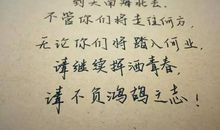 到天南海北去，
不管你们将走往何方，
无论你们将踏入何业，
请继续挥洒青春，
请不负鸿鹄之志！